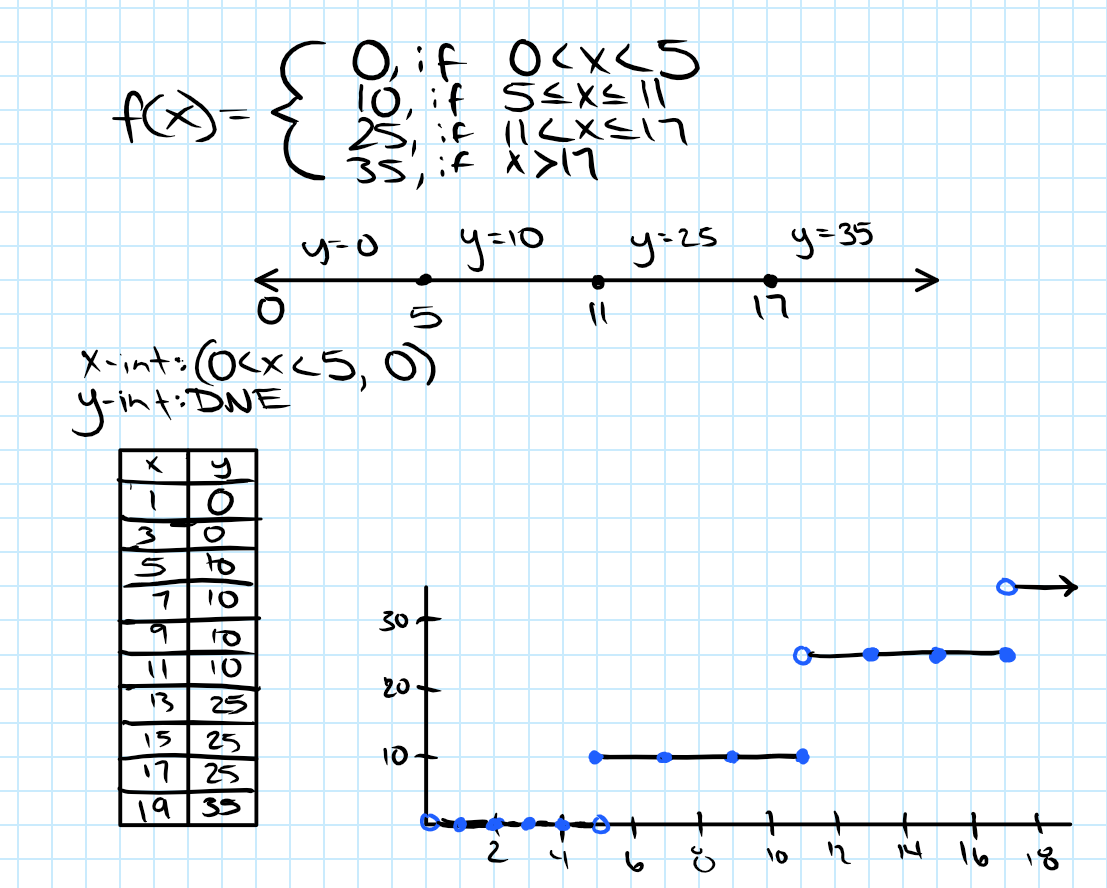 f(x)= { 0, if 0<x<5
10, if 5≤x≤11
25, if 11<x≤17
35, if x>17
y=0 y=10 y=25 y=35
0 5 11 17
x-int: (0<x<5, 0)
y-int: DNE
x y
1 0
3 0
5 10
7 10
9 10
11 10
13 25
15 25
17 25
19 35
30
20
10
2 4 6 8 10 12 14 16 18